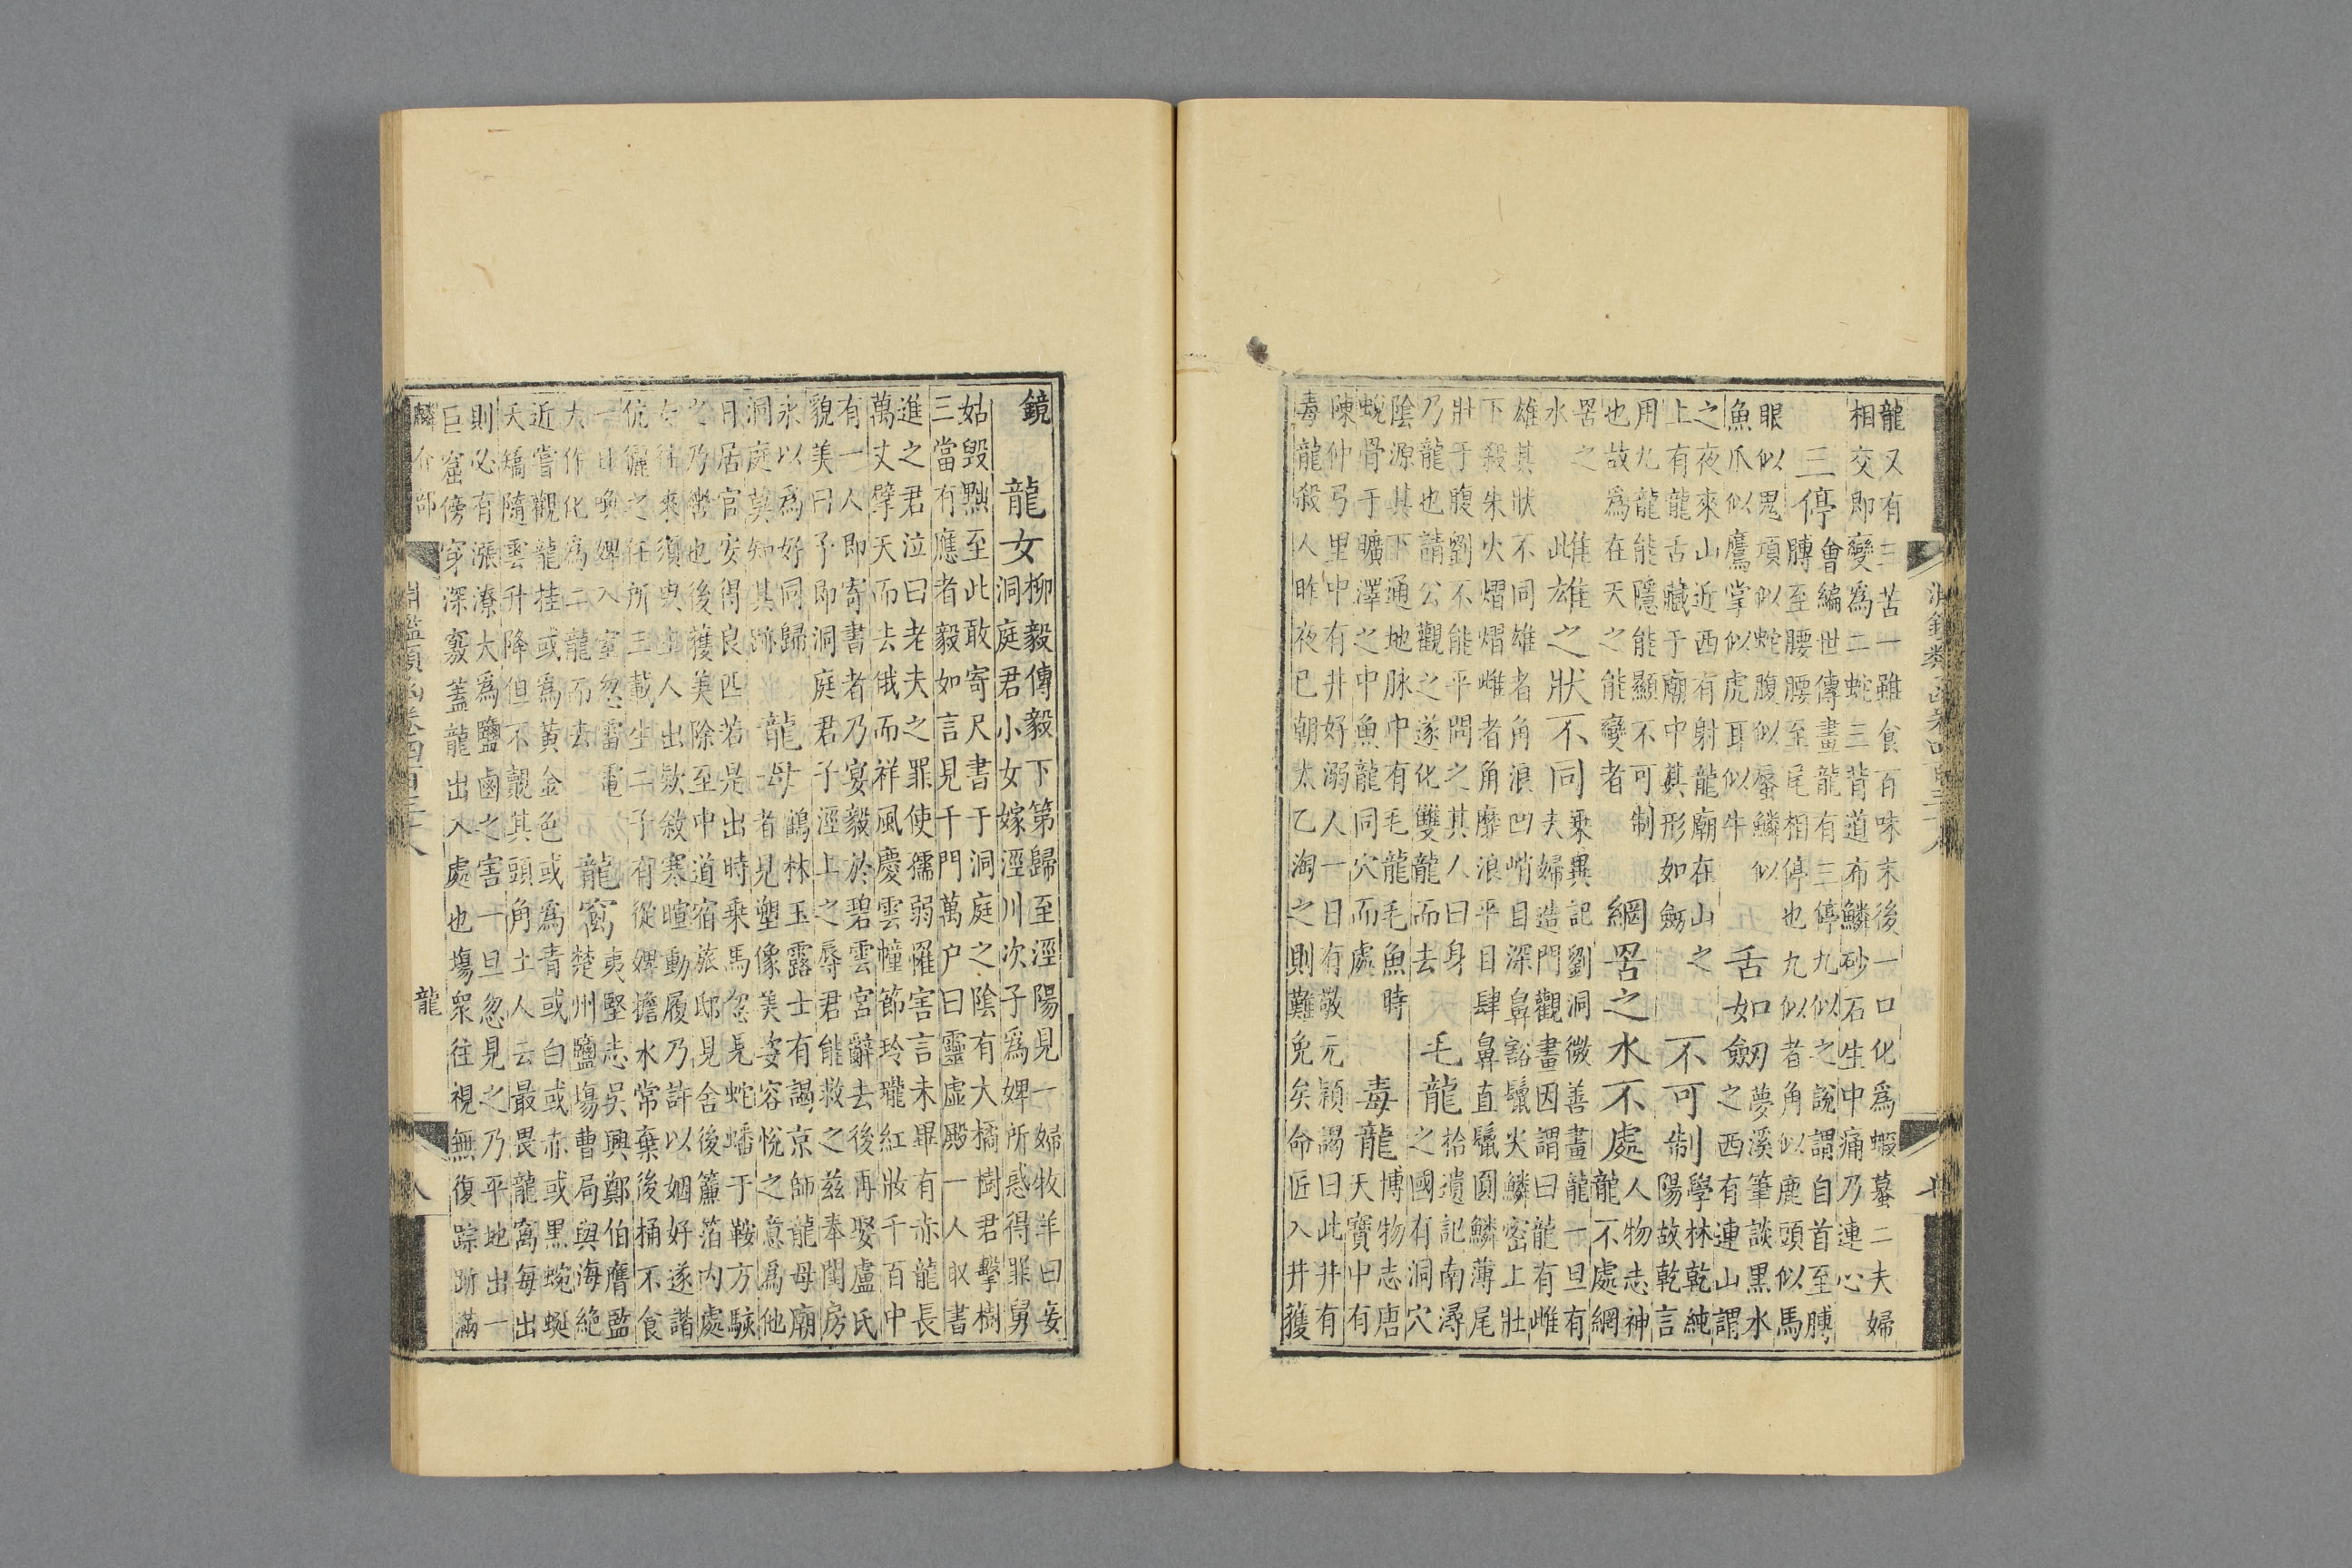 淵鑑類函卷四百三十八 七
龍又有三苦一雖食百味末後一口化爲蝦蟇二夫婦
相交即變爲二蛇三背道布鱗砂石生中痛乃連心
三停 會編世傳畫龍有三停九似之說謂自首至膊
膊至腰腰至尾相停也九似者角似鹿頭似馬
眼似鬼項似蛇腹似蜃鱗似
魚爪似鷹掌似虎耳似牛 舌如劒 夢溪筆談黑水
之西有連山謂
之夜來山近西有射龍廟在山之
上有龍舌藏于廟中其形如劒 不可制 學林乾純
陽故乾言
用九龍能隱能顯不可制
也故爲在天之能變者 網罟之水不處 人物志神
龍不處網
罟之
水 雌雄之狀不同 乗異記劉洞微善畫龍一旦有
夫婦造門觀畫因謂曰龍有雌
雄其狀不同雄者角浪凹峭目深鼻豁鬛尖鱗密上壯
下殺朱火熠熠雌者角靡浪平目肆鼻直鬛圓鱗薄尾
壯于腹劉不能平問之其人曰身
乃龍也請公觀之遂化雙龍而去 毛龍 拾遺記南潯
之國有洞穴
陰源其下通地脉中有毛龍毛魚時
蛻骨于曠澤之中魚龍同穴而處 毒龍 博物志唐
天寶中有
陳仲弓里中有井好溺人一日有敬元穎謁曰此井有
毒龍殺人昨夜已朝太乙淘之則難免矣命匠入井獲
鏡 龍女 柳毅傳毅下第歸至涇陽見一婦牧羊曰妾
洞庭君小女嫁涇川次子爲婢所惑得罪舅
姑毀黜至此敢寄尺書于洞庭之陰有大橘樹君擊樹
三當有應者毅如言見千門萬户曰靈虛殿一人取書
進之君泣曰老夫之罪使孺弱罹害言未畢有赤龍長
萬丈擘天而去俄而祥風慶雲幢節玲瓏紅妝千百中
有一人即寄書者乃宴毅於碧雲宮辭去後再娶盧氏
貌美曰予即洞庭君子涇上之辱君能救之兹奉閨房
永以爲好同歸
洞庭莫知其跡 龍母 鶴林玉露士有謁京師龍母廟
者見塑像美姿容悅之意爲他
日居官安得良匹若是出時乗馬忽見蛇蟠于鞍方駭
之乃幣也後獲美除至中道宿旅邸見舍後簾箔内處
女往來須臾主人出欵敘寒暄動履乃許以姻好遂諧
伉儷之任所三載生二子有從婢擔水常棄後桶不食
一日喚婢入室忽雷電
大作化爲二龍而去 龍窩 夷堅志吳興鄭伯膺監
楚州鹽塲曹局與海絶
近嘗觀龍挂或爲黃金色或爲青或白或赤或黒蜿蜒
夭矯隨雲升降但不覩其頭角土人云最畏龍窩每出
則必有漲潦大爲鹽鹵之害一旦忽見之乃平地出一
巨窟傍穿深窽蓋龍出入處也塲衆往視無復踪跡滿
鱗介部 淵鑑類函卷四百三十八 龍 八